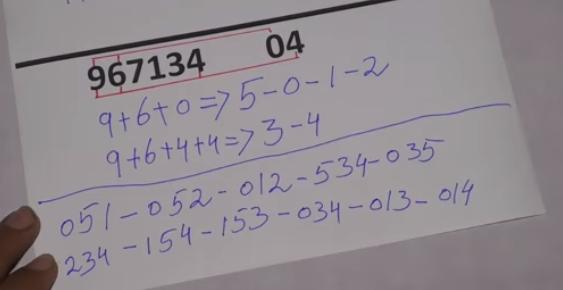 967134 04
9+6+0=>5-0-1-2
9+6+4+4=>3-4
051-052-012-534-035
234-154-153-034-013-014